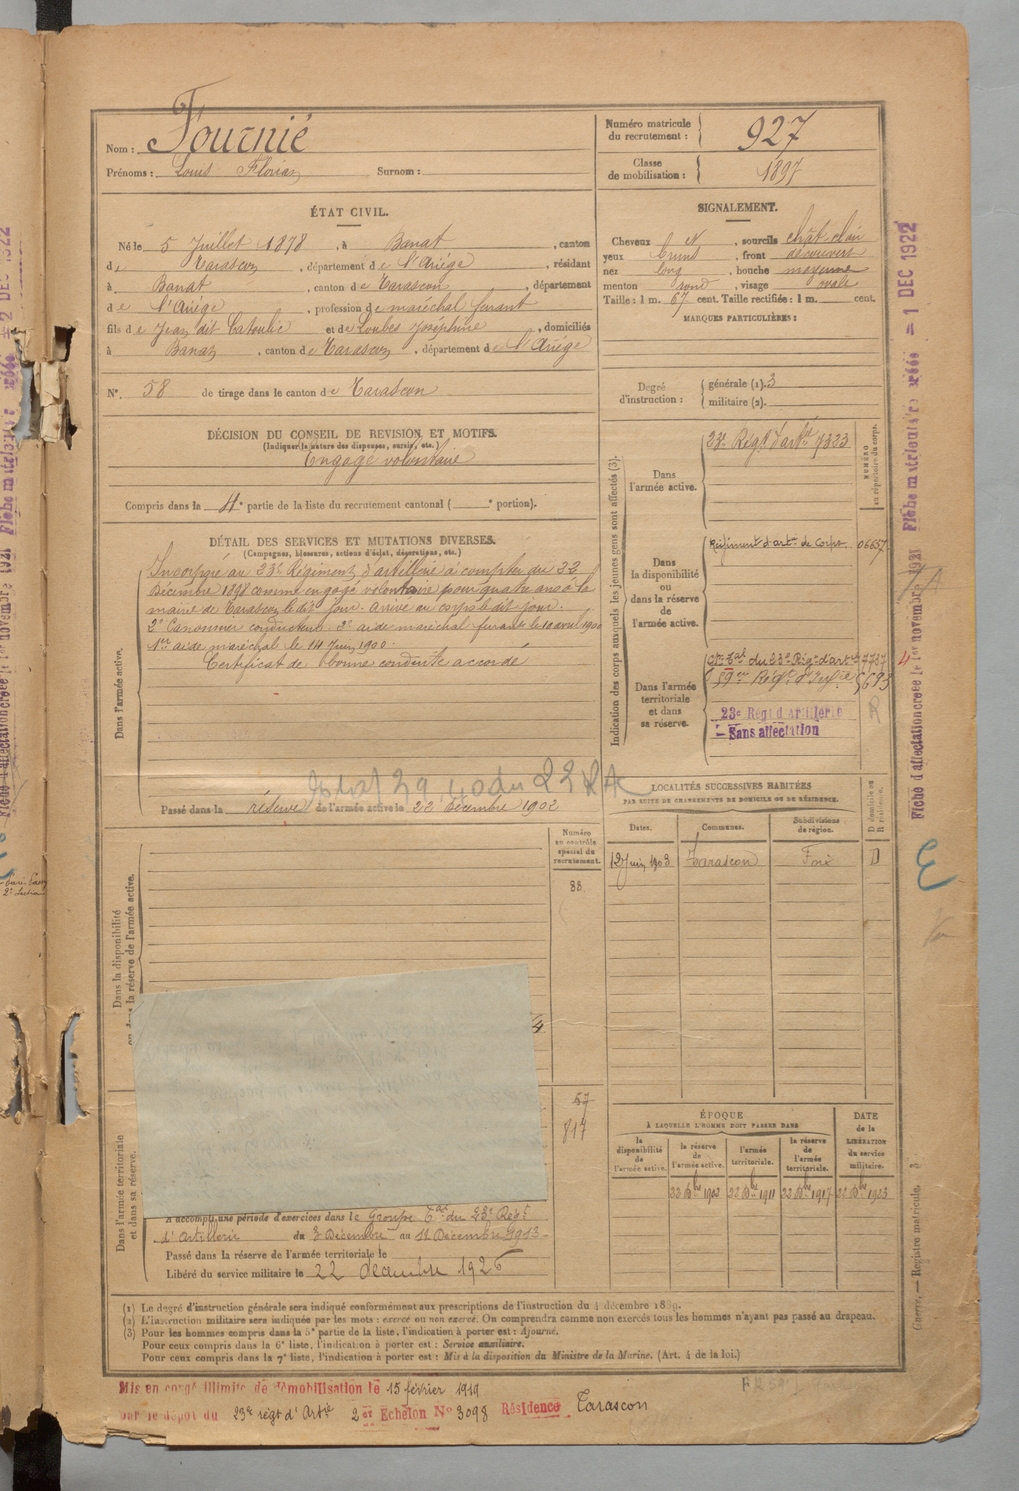 Nom : Fournié
Prénoms : Louis Florian Surnom :
Numéro matricule du recrutement : 927
Classe de mobilisation : 1897
ÉTAT CIVIL.
Né le 5 Juillet 1878, à Banat, canton
de Tarascon, département de l'Ariége, résidant
à Banat, canton de Tarascon, département
de l'Ariége, profession de maréchal ferrant
fils de Jean dit Catoulié et de Loubes Joséphine, domiciliés
à Banat, canton de Tarascon, département de l'Ariége
N° 58 de tirage dans le canton de Tarascon
SIGNALEMENT.
Cheveux N, sourcils chât-clair
yeux bruns, front découvert
nez long, bouche moyenne
menton rond, visage ovale
Taille : 1 m. 67 cent. Taille rectifiée : 1 m. cent.
MARQUES PARTICULIÈRES :
Degré d'instruction : générale (1). 3
militaire (2).
DÉCISION DU CONSEIL DE REVISION ET MOTIFS.
(Indiquer la nature des dispenses, sursis, etc.)
Engagé volontaire
Compris dans la 4e partie de la liste du recrutement cantonal ( e portion).
DÉTAIL DES SERVICES ET MUTATIONS DIVERSES.
(Campagnes, blessures, actions d'éclat, décorations, etc.)
Dans l'armée active.
Incorporé au 23e Régiment d'artillerie à compter du 22
Décembre 1898 comme engagé volontaire pour quatre ans à la
mairie de Tarascon le dit jour. Arrivé au corps le dit jour.
2e Canonnier conducteur. 2e aide maréchal ferrant le 10 avril 1900
1er aide maréchal le 14 Juin 1900.
Certificat de bonne conduite accordé
Passé dans la réserve de l'armée active le 22 Décembre 1902
Indication des corps auxquels les jeunes gens sont affectés (3).
NUMÉRO au répertoire du corps.
Dans l'armée active.
23e Régt d'artie 7323
Dans la disponibilité ou dans la réserve de l'armée active.
Régiment d'artie de Corps 06657
Dans l'armée territoriale et dans sa réserve.
Gpe Tal du 23e Régt d'artie 7787
59me Régt d'Infie 5693
23e Régt d'Artillerie
Sans affectation
LOCALITÉS SUCCESSIVES HABITÉES
PAR SUITE DE CHANGEMENTS DE DOMICILE OU DE RÉSIDENCE.
Dates. Communes. Subdivisions de région. D domicile ou R résidence.
12 Juin 1903 Tarascon Foix D
Numéro au contrôle spécial du recrutement.
88
Dans la disponibilité ou dans la réserve de l'armée active.
57
817
Dans l'armée territoriale et dans sa réserve.
A accompli une période d'exercices dans le Groupe Tal du 23e Régt
d'Artillerie du 3 Décembre au 11 Décembre 1913
Passé dans la réserve de l'armée territoriale le
Libéré du service militaire le 22 décembre 1926
ÉPOQUE
À LAQUELLE L'HOMME DOIT PASSER DANS
la disponibilité de l'armée active. la réserve de l'armée active. l'armée territoriale. la réserve de l'armée territoriale.
DATE de la LIBÉRATION du service militaire.
22 Xbre 1902 22 Xbre 1911 22 Xbre 1917 22 Xbre 1923
(1) Le degré d'instruction générale sera indiqué conformément aux prescriptions de l'instruction du 4 décembre 1889.
(2) L'instruction militaire sera indiquée par les mots : exercé ou non exercé. On comprendra comme non exercés tous les hommes n'ayant pas passé au drapeau.
(3) Pour les hommes compris dans la 5e partie de la liste, l'indication à porter est : Ajourné.
Pour ceux compris dans la 6e liste, l'indication à porter est : Service auxiliaire.
Pour ceux compris dans la 7e liste, l'indication à porter est : Mis à la disposition du Ministre de la Marine. (Art. 4 de la loi.)
Mis en congé illimité de démobilisation le 15 février 1919
par le dépôt du 23e régt d'Artie 2e Echelon N° 3098 Résidence Tarascon
Fiche d'affectation créée le 1er novembre 1921 Fiche matriculaire créée = 1 DEC 1922
Guerre. — Registre matricule.